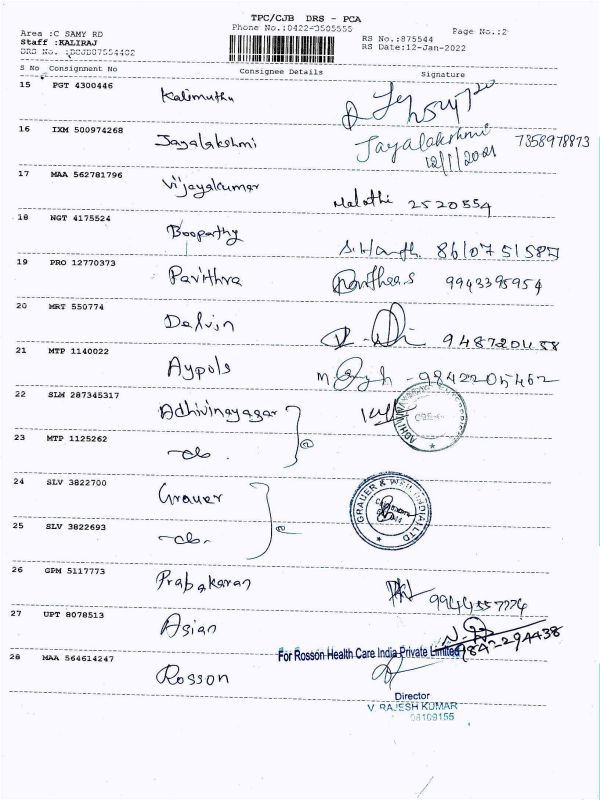 TPC/CJB DRS - PCA
Phone No.:0422-3505555
Area :C SAMY RD
Staff :KALIRAJ
RS No.:875544 Page No.:2
RS Date:12-Jan-2022
S No Consignment No Consignee Details Signature
15 PGT 4300446 Kalimuthu
16 IXM 500974268 Jayalakshmi Jayalakshmi 7358978873
12/1/2021
17 MAA 562781796 Vijayakumar Malathi 2520554
18 NGT 4175524 Boopathy 8610751585
19 PRO 12770373 Pavithra 9943395954
20 MRT 550774 Delvin
21 MTP 1140022 Aypols 9842205462
22 SLM 287345317 Adhivinayagar
23 MTP 1125262 -do.
24 SLV 3822700 Grauer GRAUER & WEIL (INDIA) LTD
25 SLV 3822693 -do-
26 GPM 5117773 Prabakaran
27 UPT 8078513 Asian
For Rosson Health Care India Private Limited
28 MAA 564614247 Rosson
Director
V. RAJESH KUMAR
08109155